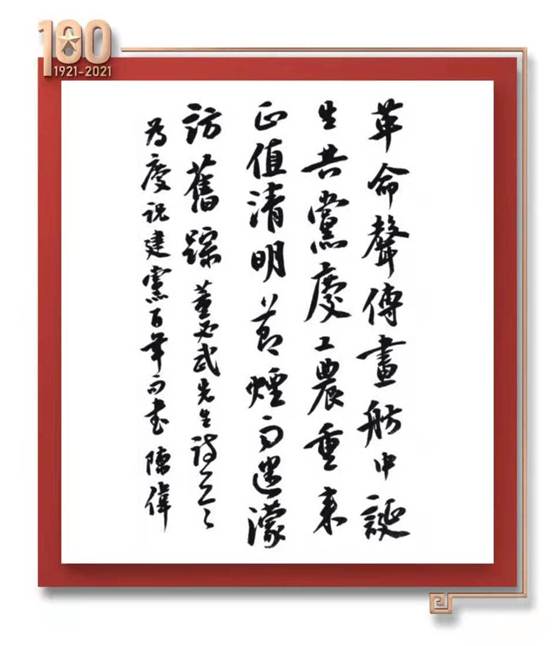 100
1921-2021
革命聲傳畫舫中誕
生共黨慶工農重來
正值清明節煙雨迷濛
訪舊踪 董必武先生詩
為慶祝建黨百年而書 陳偉